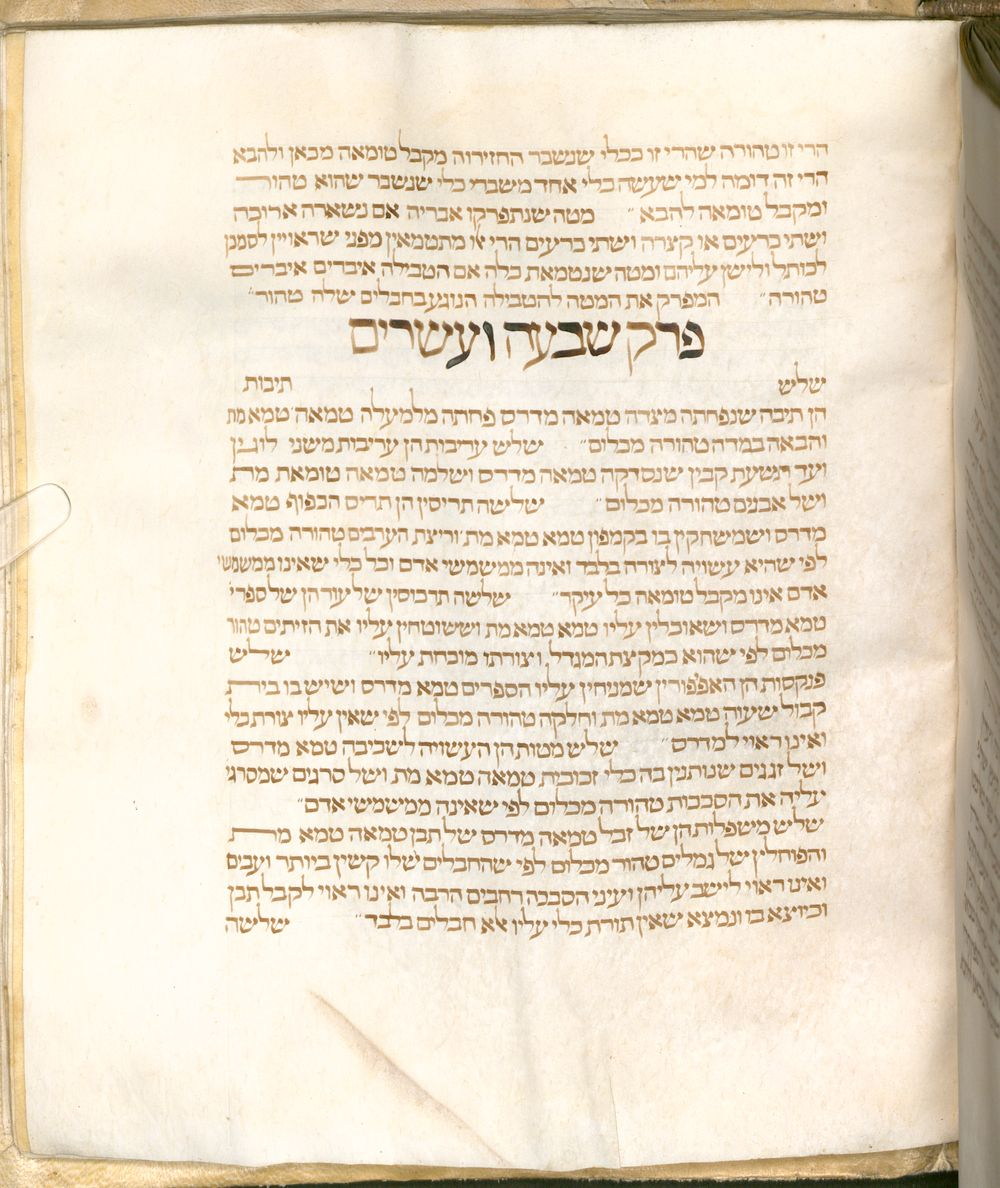 הרי זו טהורה שהרי זו ככלי שנשבר החזירוה מקבל טומאה מכאן ולהבא
הרי זה דומה למי שעשה כלי אחד משברי כלי שנשבר שהוא טהור
ומקבל טומאה להבא״ מטה שנתפרקו אבריה אם נשארה ארוכה
ושתי כרעים או קצרה ושתי כרעים הרי אלו מתטמאין מפני שראויין לסמכן
לכותל ולישן עליהם ומטה שנטמאת כלה אם הטבילה איברים איברים
טהורה״ המפרק את המטה להטבילה הנוגע בחבלים שלה טהור״
פרק שבעה ועשרים
שלש תיבות
הן תיבה שנפחתה מצדה טמאה מדרס פחתה מלמעלה טמאה טמא מת
והבאה במדה טהורה מכלום״ שלש עריבות הן עריבות משני לוגין
ועד תשעת קבין שנסדקה טמאה מדרס ושלמה טמאה טומאת מת
ושל אבנים טהורה מכלום״ שלשה תריסין הן תריס הכפוף טמא
מדרס ושמשחקין בו בקמפון טמא טמא מת וריצת הערבים טהורה מכלום
לפי שהיא עשויה לצורה בלבד ואינה ממשמשי אדם וכל כלי שאינו ממשמשי
אדם אינו מקבל טומאה כל עיקר״ שלשה תרכוסין של עור הן של ספרי
טמא מדרס ושאוכלין עליו טמא טמא מת וששוטחין עליו את הזיתים טהור
מכלום לפי שהוא כמקצת המגדל וצורתו מוכחת עליו״ שלש
פנקסות הן האפפורין שמניחין עליו הספרים טמא מדרס ושיש בו בית
קבול ישעוה טמא טמא מת וחלקה טהורה מכלום לפי שאין עליו צורת כלי
ואינו ראוי למדרס״ שלש מטות הן העשויה לשכיבה טמא מדרס
ושל זגגים שנותנין בה כלי זכוכית טמאה טמא מת ושל סרגים שמסרגי
עליה את הסבכות טהורה מכלום לפי שאינה ממשמשי אדם״
שלש משפלות הן של זבל טמאה מדרס של תבן טמאה טמא מת
והפוחלץ של גמלים טהור מכלום לפי שהחבלים שלו קשין ביותר ועבים
ואינו ראוי לישב עליהן ועיני הסבכה רחבים הרבה ואינו ראוי לקבל תבן
וכיוצא בו ונמצא שאין תורת כלי עליו אלא חבלים בלבד״ שלשה